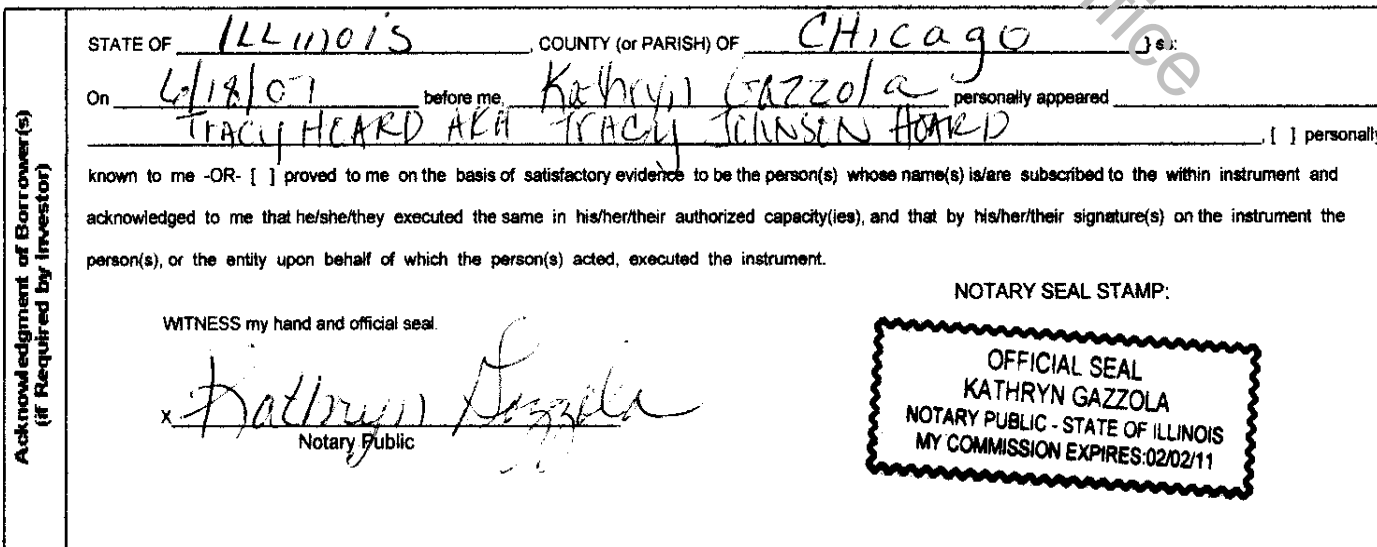 Office
STATE OF ILLINOIS, COUNTY (or PARISH) OF CHICAGO } ss:
On 6/18/07 before me, Kathryn Gazzola personally appeared
TRACY HEARD AKA TRACY JOHNSON HOARD, [ ] personally
known to me -OR- [ ] proved to me on the basis of satisfactory evidence to be the person(s) whose name(s) is/are subscribed to the within instrument and
acknowledged to me that he/she/they executed the same in his/her/their authorized capacity(ies), and that by his/her/their signature(s) on the instrument the
person(s), or the entity upon behalf of which the person(s) acted, executed the instrument.
NOTARY SEAL STAMP:
WITNESS my hand and official seal.
x Kathryn Gazzola
Notary Public
OFFICIAL SEAL
KATHRYN GAZZOLA
NOTARY PUBLIC - STATE OF ILLINOIS
MY COMMISSION EXPIRES:02/02/11
Acknowledgment of Borrower(s)
(if Required by Investor)